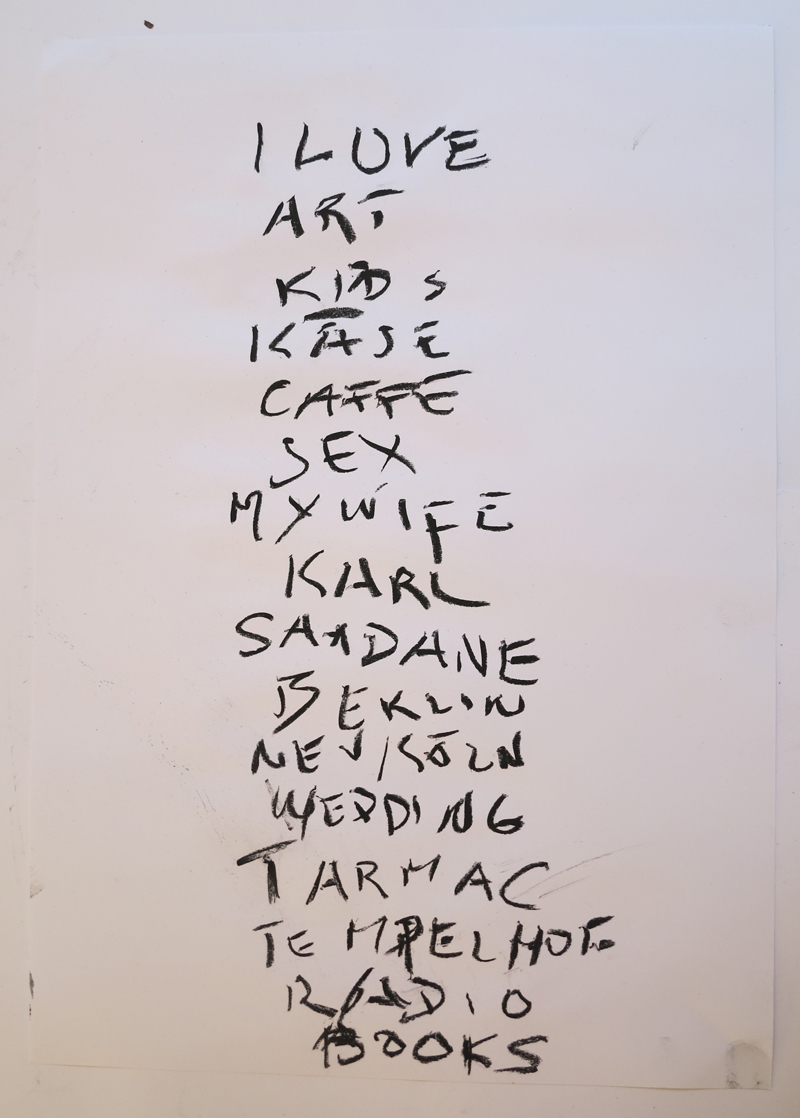 I LOVE
ART
KIDS
KÄSE
CAFFE
SEX
MY WIFE
KARL
SARDANE
BERLIN
NEUKÖLN
WEDDING
TARMAC
TEMPELHOF
RADIO
BOOKS